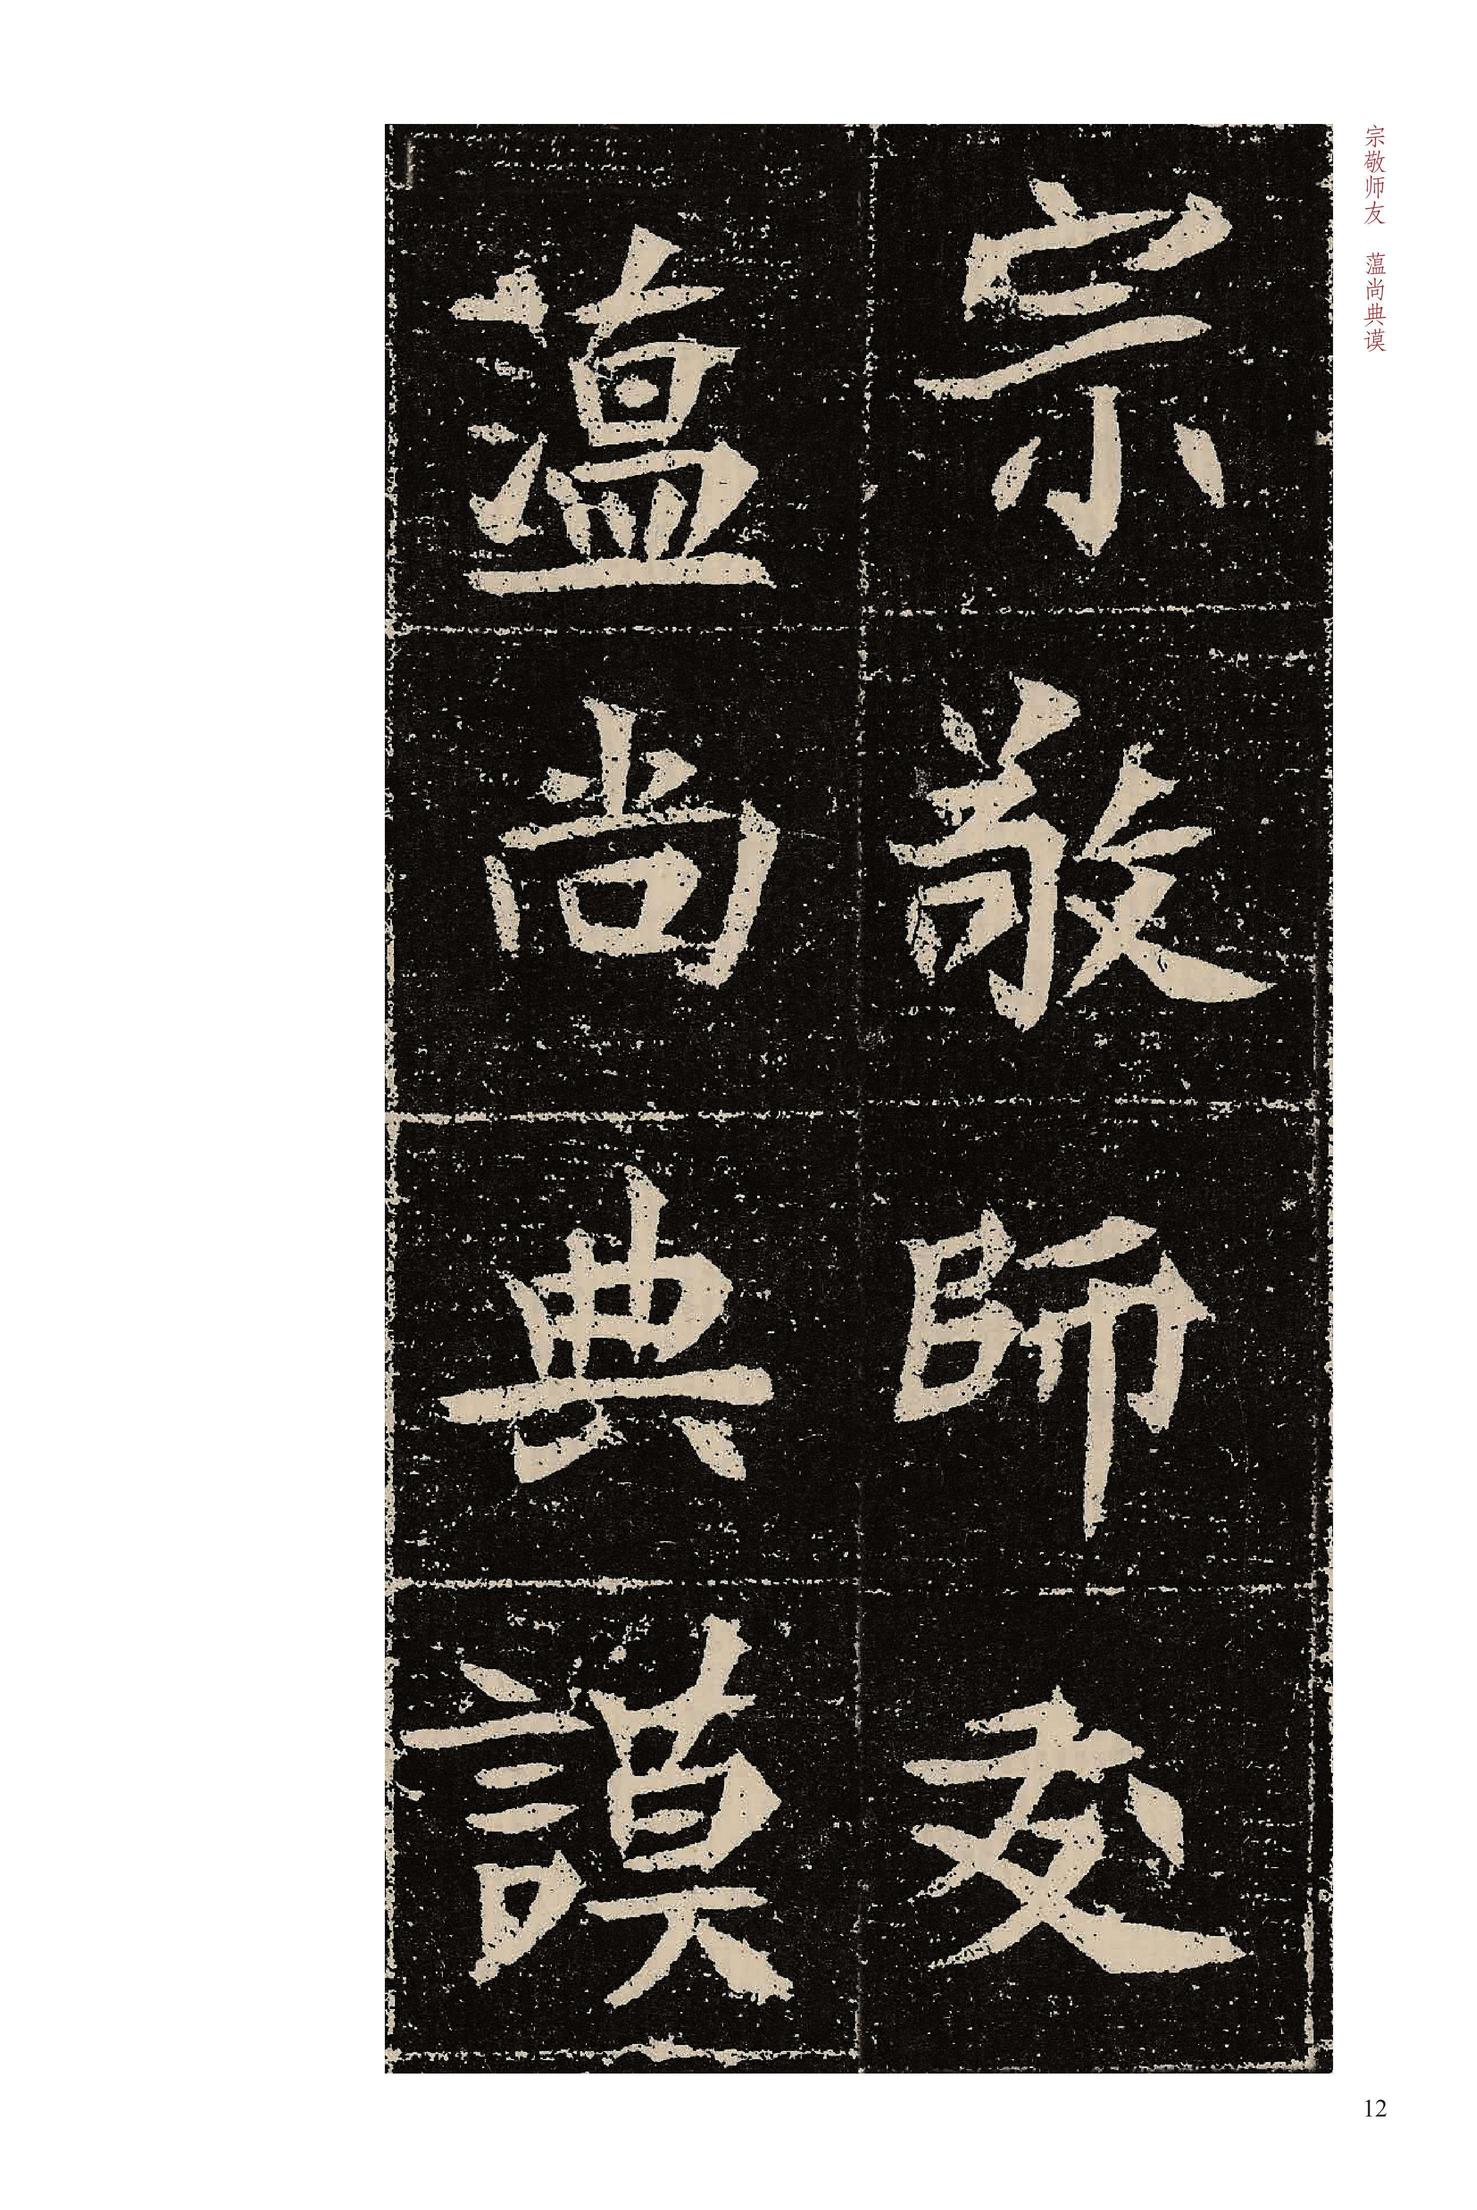 宗敬师友　薀尚典谟
宗敬師友
薀尚典謨
12